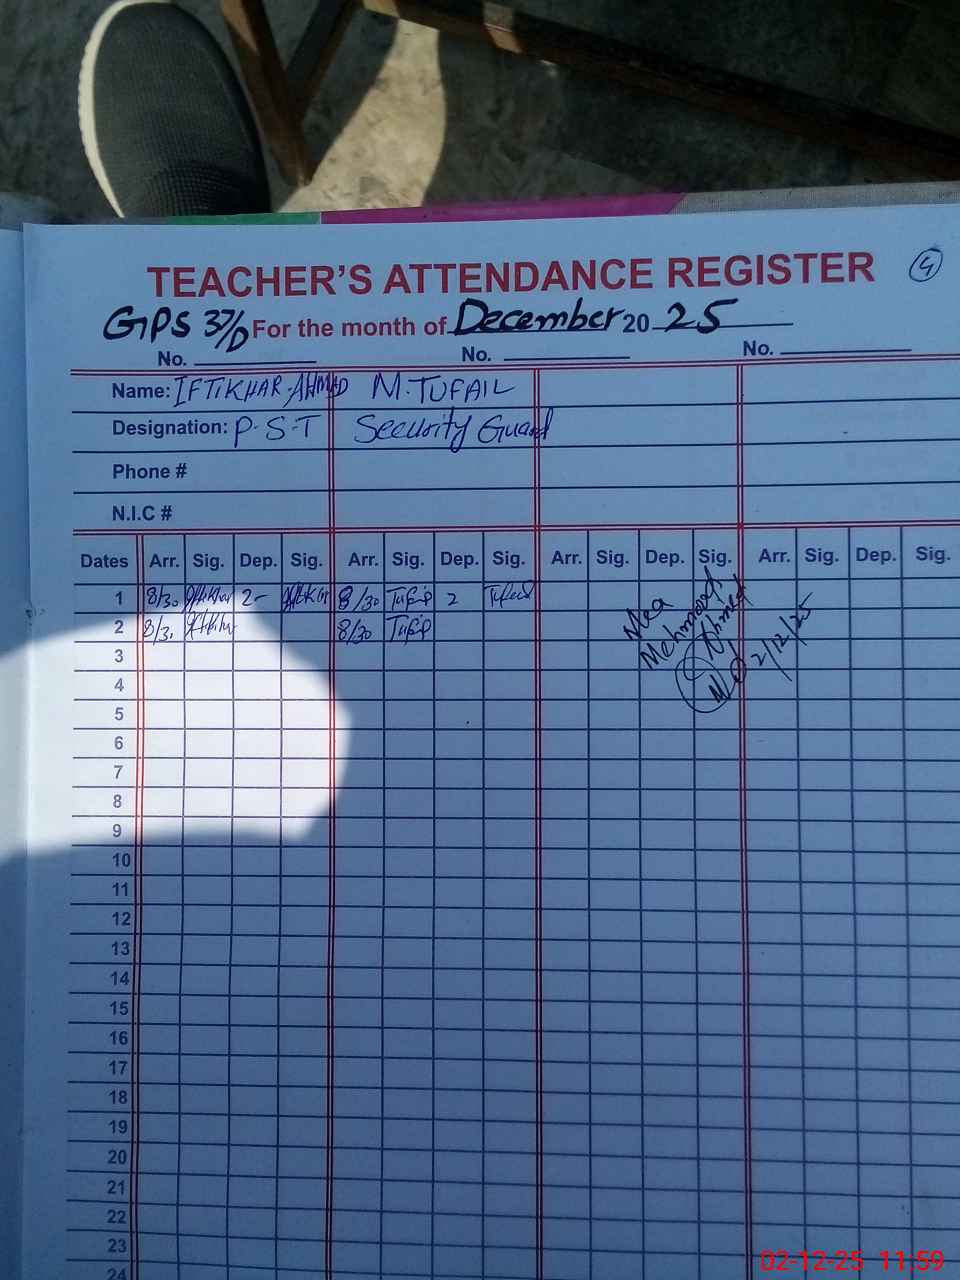 TEACHER'S ATTENDANCE REGISTER 4
GPS 37/D For the month of December 20 25
No. No. No.
Name: IFTIKHAR-AHMAD M. TUFAIL
Designation: P-S-T Security Guard
Phone #
N.I.C #
Dates Arr. Sig. Dep. Sig. Arr. Sig. Dep. Sig. Arr. Sig. Dep. Sig. Arr. Sig. Dep. Sig.
1 8/30 Iftikhar 2- Iftikhar 8/30 Tufail 2 Tufail
2 8/30 Iftikhar 8/30 Tufail
Mea
Mehmood
Ahmed
2/12/25
3
4
5
6
7
8
9
10
11
12
13
14
15
16
17
18
19
20
21
22
23
24
02-12-25 11:59